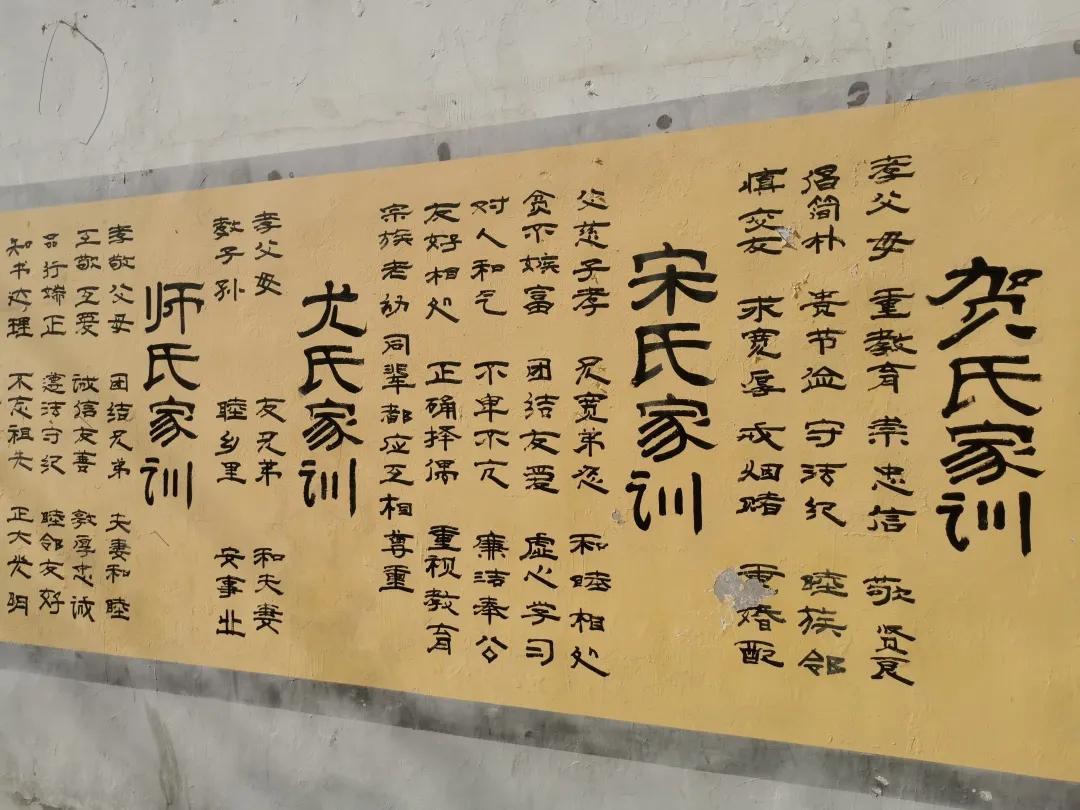 贺氏家训
孝父母 重教育 崇忠信 敬贤良
倡简朴 贵节俭 守法纪 睦族邻
慎交友 求宽厚 戒烟赌 重婚配
宋氏家训
父慈子孝 兄宽弟忍 和睦相处
贪不嫉富 团结友爱 虚心学习
对人和气 不卑不亢 廉洁奉公
友好相处 正确择偶 重视教育
宗族老幼同辈都应互相尊重
尤氏家训
孝父母 友兄弟 和夫妻
教子孙 睦乡里 安事业
师氏家训
孝敬父母 团结兄弟 夫妻和睦
互敬互爱 诚信友善 敦厚忠诚
品行端正 遵法守纪 睦邻友好
知书达理 不忘祖先 正大光明